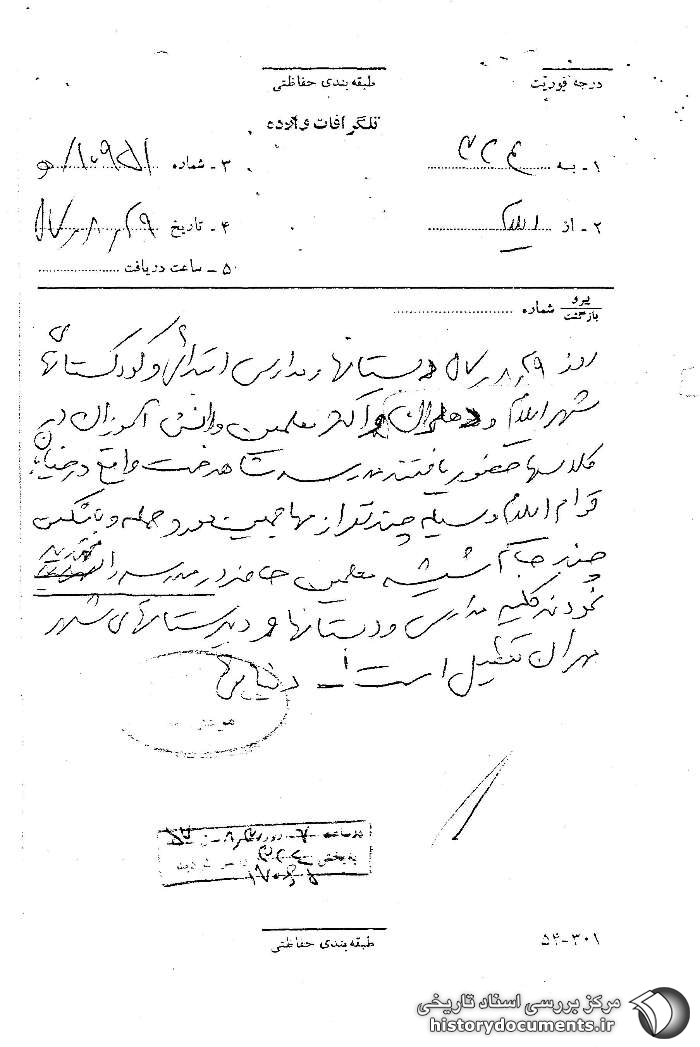 درجه فوریت
طبقه بندی حفاظتی
تلگرافات وارده
۱- به ۳۴۲
۳- شماره ۱۰۹۵۱/ه
۲- از ایلام
۴- تاریخ ۲۹ر۸ر۵۷
۵- ساعت دریافت
پیرو
بازگشت شماره
روز ۲۹ر۸ر۵۷ دبستانها و مدارس ابتدائی و کودکستانهای
شهر ایلام و دهلران و اکثر معلمین و دانش آموزان در
کلاسها حضور یافتند مدرسه شاهدخت واقع در خیابان
قوام ایلام وسیله چند نفر از مهاجمین مورد حمله و با شکستن
چند جام شیشه معلمین حاضر در مدرسه را تهدید
نمودند کلیه مدارس و دبستانها و دبیرستانهای شهر
مهران تعطیل است.
طبقه بندی حفاظتی
۵۴-۳۰۱
مرکز بررسی اسناد تاریخی
historydocuments.ir